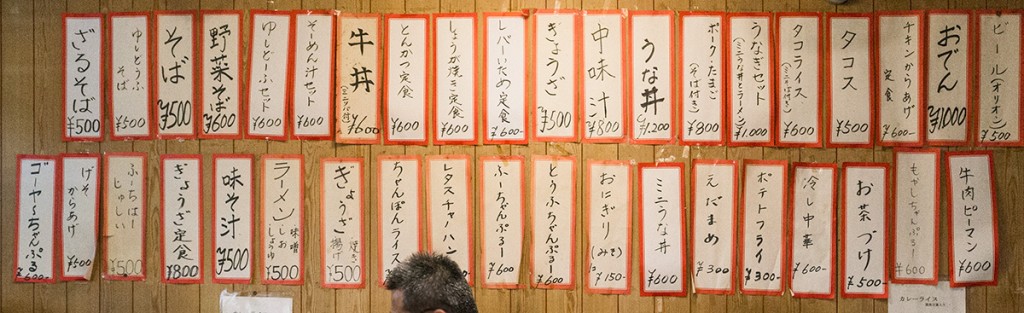 ビール(オリオン) ¥500
おでん ¥1000
チキンからあげ定食 ¥600
タコス ¥500
タコライス(ミニそば付き) ¥600
うなぎセット(ミニうな丼とラーメン) ¥1,000
ポーク・たまご(そば付き) ¥800
うな丼 ¥1,200
中味汁 ¥800
ぎょうざ ¥500
レバーいため定食 ¥600
しょうが焼き定食 ¥600
とんかつ定食 ¥600
牛丼(ミニそば付) ¥600
そーめん汁セット ¥600
ゆしどーふセット ¥600
野菜そば ¥600
そば ¥500
ゆしどうふそば ¥500
ざるそば ¥500
牛肉ピーマン ¥600
もやしちゃんぷるー ¥600
お茶づけ ¥500
冷し中華 ¥600
ポテトフライ ¥300
えだまめ ¥300
ミニうな丼 ¥600
おにぎり(みそ) ¥150
とうふちゃんぷるー ¥600
ふーちゃんぷるー ¥600
レタスチャーハン
ちゃんぽんライス
ぎょうざ 焼き 揚げ ¥500
ラーメン 味噌 しお しょうゆ ¥500
味そ汁 ¥500
ぎょうざ定食 ¥800
ふーちばーじゅしい ¥500
げそからあげ ¥500
ゴーヤーちゃんぷる ¥600
カレーライス